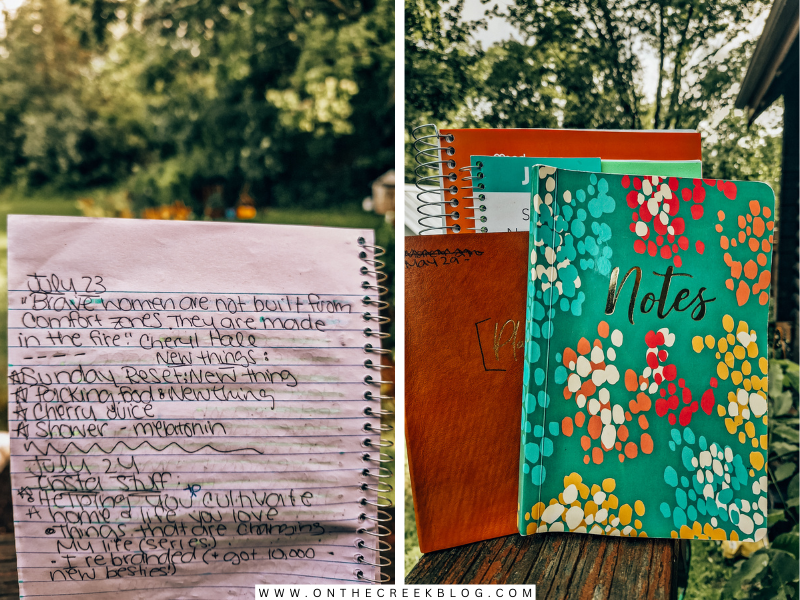 July 23
"Brave women are not built from
comfort zones. They are made
in the fire." Cheryl Hale
New things:
☆Sunday Reset: New thing
☆ Packing food: New thing
☆ Cherry Juice
☆ Shower - melatonin
July 24
Insta Stuff:
☆ Helping you cultivate
a home & life you love
• Things that are changing
My life (series)
- I rebranded (+ got 10,000
new besties!)
J
S
N
May 29 -
Notes
WWW.ONTHECREEKBLOG.COM